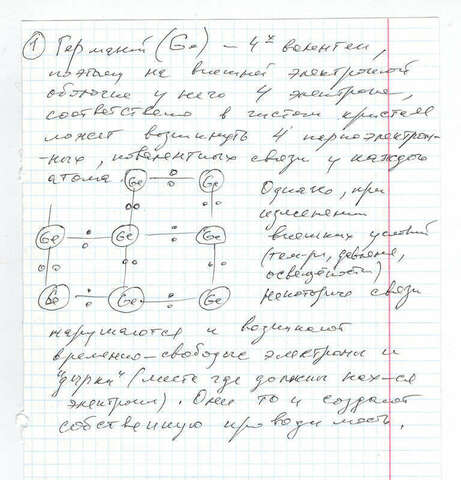 1 Германий (Ge) - 4х валентен,
поэтому на внешней электронной
оболочке у него 4 электрона,
соответственно в чистом кристалле
может возникнуть 4 парноэлектрон-
-ных, ковалентных связи у каждого
атома.
Ge Ge
Однако, при
изменении
Ge Ge Ge
внешних условий
(темп-ры, давления,
освещённости)
Ge Ge Ge
некоторые связи
нарушаются и возникают
временно-свободные электроны и
"дырки" (места где должны нах-ся
электроны). Они то и создают
собственную проводимость.